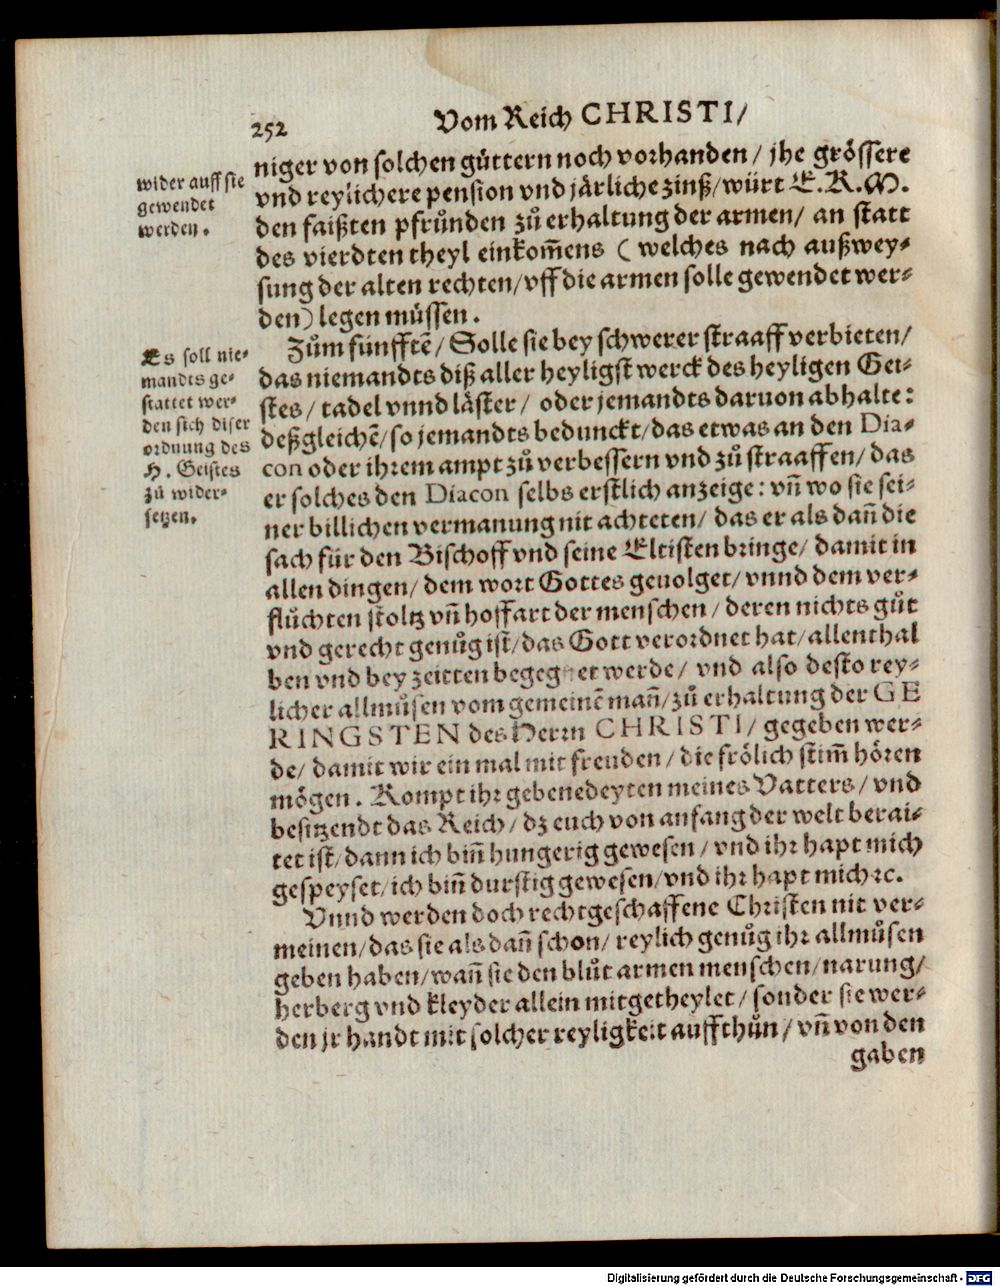 252
Vom Reich CHRISTI/
wider auff sie
gewendet
werden.
niger von solchen güttern noch vorhanden / jhe grössere
vnd reylichere pension vnd järliche zinß/würt E.K.M.
den faißten pfrůnden zů erhaltung der armen/ an statt
des vierdten theyl einkom̃ens ( welches nach außwey⸗
sung der alten rechten/vff die armen solle gewendet wer⸗
den) legen müssen.
Es soll nie⸗
mandts ge⸗
stattet wer⸗
den sich diser
ordnung des
H. Geistes
zů wider⸗
setzen.
Zům fünfftē/ Solle sie bey schwerer straaff verbieten/
das niemandts diß aller heyligst werck des heyligen Gei⸗
stes/ tadel vnnd läster/ oder jemandts daruon abhalte:
deßgleichē/so jemandts bedunckt/das etwas an den Dia⸗
con oder ihrem ampt zů verbessern vnd zů straaffen/das
er solches den Diacon selbs erstlich anzeige: vñ wo sie sei⸗
ner billichen vermanung nit achteten/ das er als dañ die
sach für den Bischoff vnd seine Eltisten bringe/ damit in
allen dingen/ dem wort Gottes geuolget/ vnnd dem ver⸗
flůchten stoltz vñ hoffart der menschen / deren nichts gůt
vnd gerecht genůg ist/das Gott verordnet hat/allenthal
ben vnd bey zeitten begegnet werde/ vnd also desto rey⸗
licher allmůsen vom gemeinē mañ/zů erhaltung der GE
RINGSTEN des Herrn CHRISTI/ gegeben wer⸗
de/ damit wir ein mal mit freuden / die frölich stim̃ hören
mögen. Kompt ihr gebenedeyten meines Vatters/ vnd
besitzendt das Reich/ dz euch von anfang der welt berai⸗
tet ist/dann ich biñ hungerig gewesen / vnd ihr hapt mich
gespeyset/ich biñ durstig gewesen/vnd ihr hapt mich ꝛc.
Vnnd werden doch rechtgeschaffene Christen nit ver⸗
meinen/das sie als dañ schon/ reylich genůg ihr allmůsen
geben haben/wañ sie den blůt armen menschen/narung/
herberg vnd kleyder allein mitgetheylet/ sonder sie wer⸗
den jr handt mit solcher reyligkeit auffthůn/ vñ von den
gaben
Digitalisierung gefördert durch die Deutsche Forschungsgemeinschaft - DFG